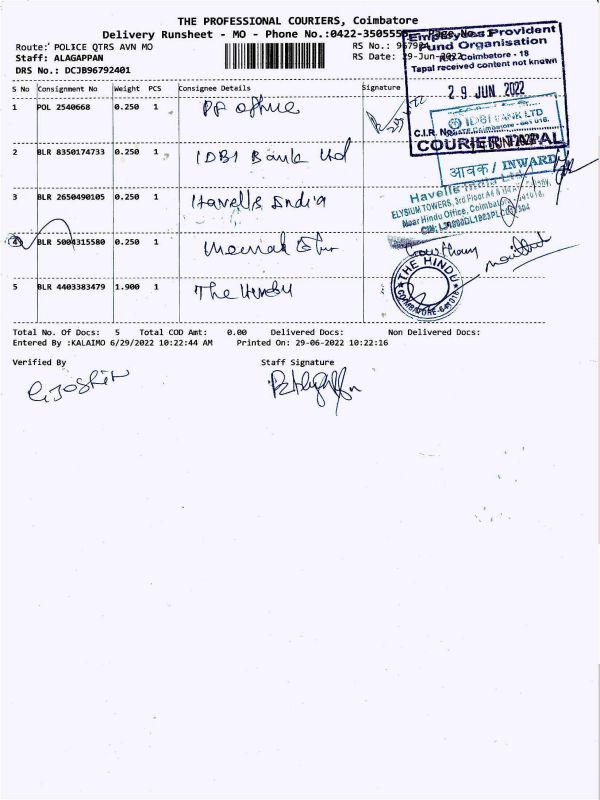 THE PROFESSIONAL COURIERS, Coimbatore
Delivery Runsheet - MO - Phone No.:0422-350555 Page No.:1
Route: POLICE QTRS AVN MO RS No.:
Staff: ALAGAPPAN RS Date: 29-Jun-2022
DRS No.: DCJB96792401
Employees Provident
Fund Organisation
Coimbatore - 18
Tapal received content not known
29 JUN 2022
C.I.R. No.
COURIER TAPAL
S No Consignment No Weight PCS Consignee Details Signature
1 POL 2540668 0.250 1 PF office
2 BLR 8350174733 0.250 1 IDBI Bank Ltd
IDBI BANK LTD
Coimbatore - 641 018.
आवक / INWARD
3 BLR 2650490105 0.250 1 Havells India
Havells
ELYSIUM TOWERS, 3rd Floor
Near Hindu Office, Coimbatore 641018.
4 BLR 5004315580 0.250 1
Gowtham
5 BLR 4403383479 1.900 1 The Hindu
THE HINDU
COIMBATORE-641018
Total No. Of Docs: 5 Total COD Amt: 0.00 Delivered Docs: Non Delivered Docs:
Entered By :KALAIMO 6/29/2022 10:22:44 AM Printed On: 29-06-2022 10:22:16
Verified By Staff Signature